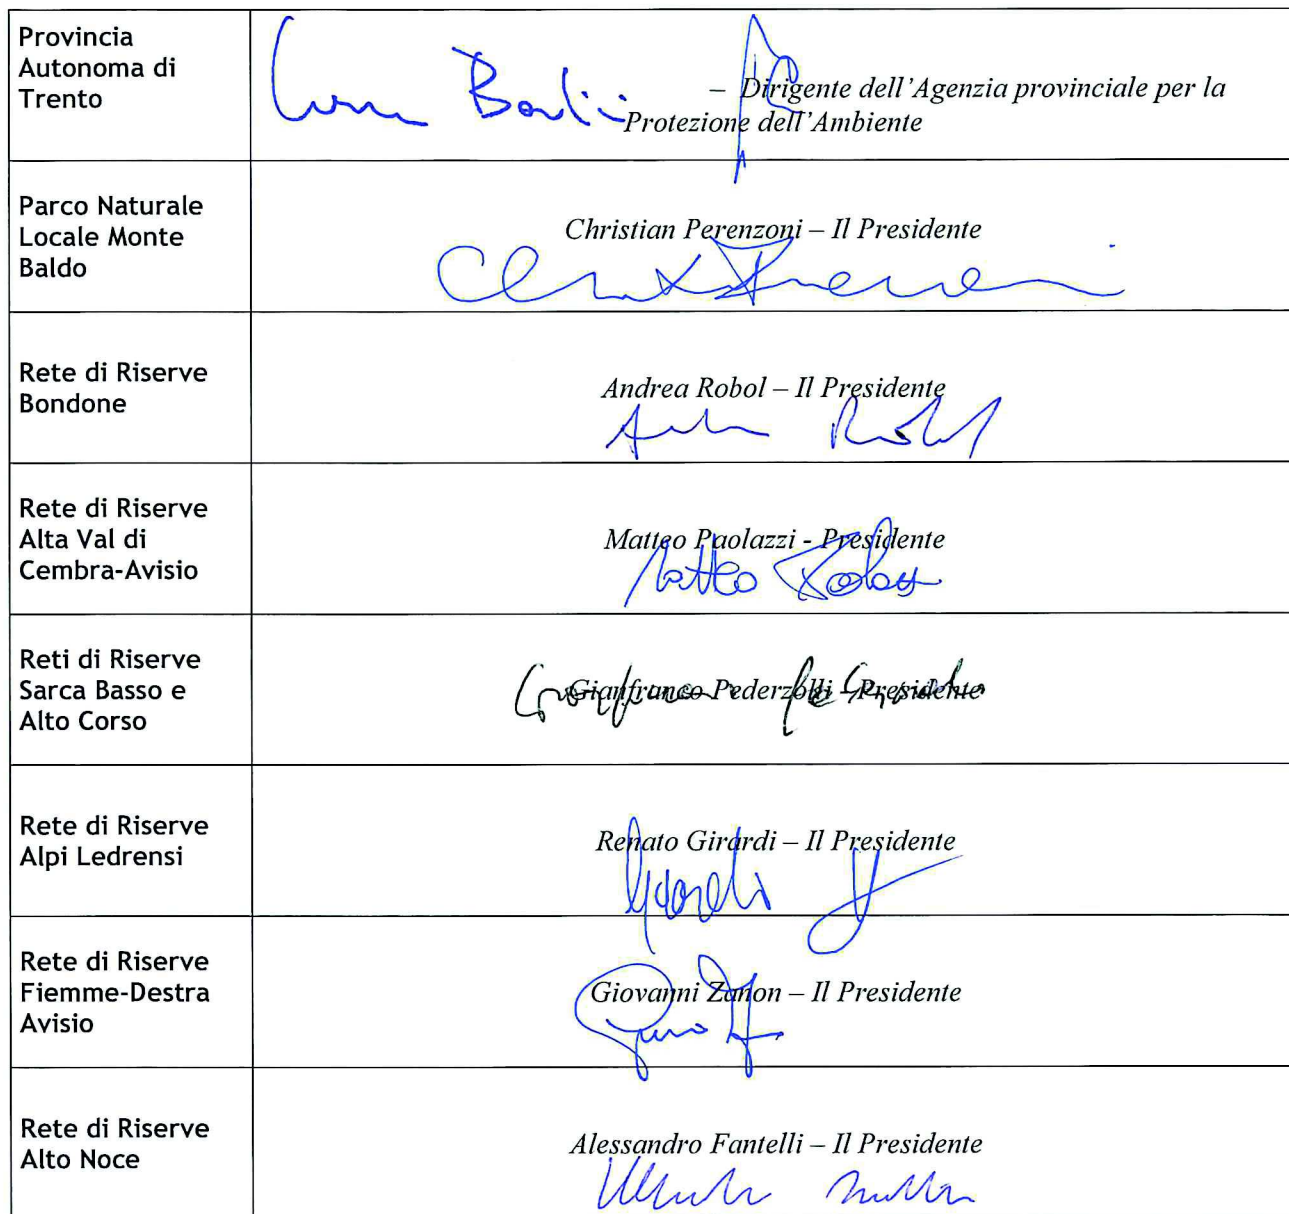 Provincia
Autonoma di
Trento
– Dirigente dell'Agenzia provinciale per la
Protezione dell'Ambiente
Parco Naturale
Locale Monte
Baldo
Christian Perenzoni – Il Presidente
Rete di Riserve
Bondone
Andrea Robol – Il Presidente
Rete di Riserve
Alta Val di
Cembra-Avisio
Matteo Paolazzi - Presidente
Matteo
Reti di Riserve
Sarca Basso e
Alto Corso
Gianfranco Pederzolli – Presidente
Rete di Riserve
Alpi Ledrensi
Renato Girardi – Il Presidente
Rete di Riserve
Fiemme-Destra
Avisio
Giovanni Zanon – Il Presidente
Rete di Riserve
Alto Noce
Alessandro Fantelli – Il Presidente